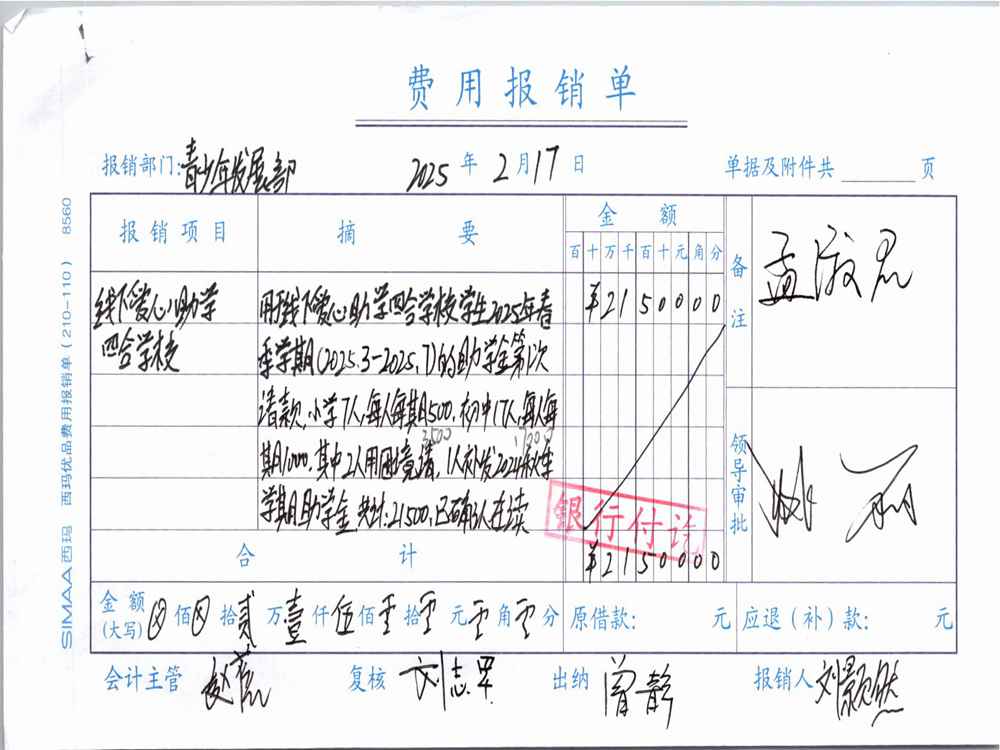 费用报销单
报销部门:青少年发展部 2025年2月17日 单据及附件共 页
报销项目 摘要 金额 备注
百十万千百十元角分
孟淑君
线下爱心助学 用于线下爱心助学四合学校学生2025年春 ¥2150000
四合学校 季学期(2025.3-2025.7)的助学金第1次
请款,小学7人,每人每期500,初中17人,每人每
3500
期1000.其中2人用困境请,1人补发2024秋季
学期助学金 共计:21500,已有 人在读
领导审批
银行付讫
合计 ¥2150000
金额(大写) 佰 拾贰万壹仟伍佰零拾零元零角零分 原借款: 元 应退(补)款: 元
会计主管 复核 刘志军 出纳 曾静 报销人 刘颢然
SIMAA西玛 西玛优品费用报销单(210-110) 8560